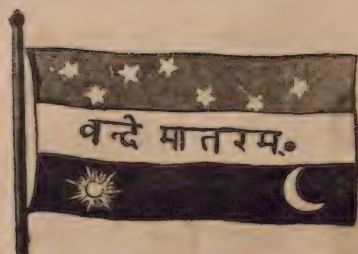 वन्दे मातरम्॰